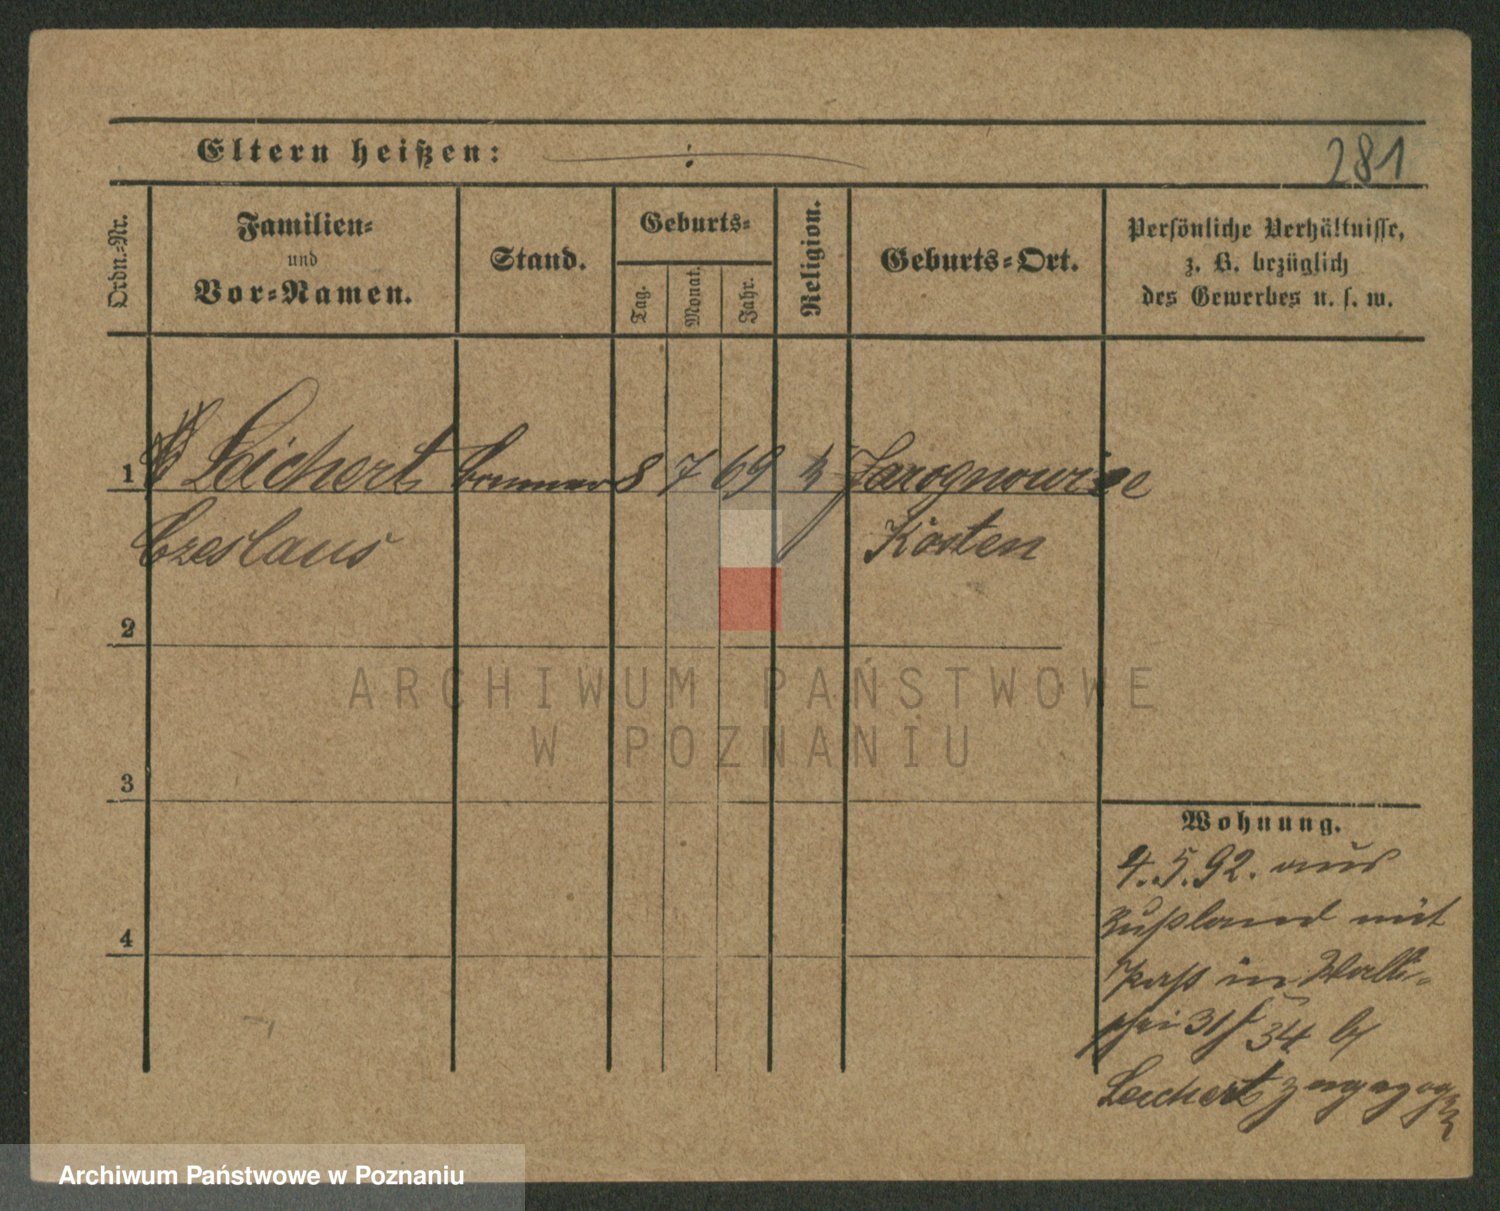 Eltern heißen:
281
Ordn.-Nr.
Familien-
und
Vor-Namen.
Stand.
Geburts-
Tag.
Monat.
Jahr.
Religion.
Geburts-Ort.
Persönliche Verhältnisse,
z. B. bezüglich
des Gewerbes u. s. w.
1 Leichert 8 7 69 k Jarognowice
Czeslaus Kosten
2
3
4
Wohnung.
4.5.92. aus
Rußland mit
Paß in Walli-
schei 31/34 b/
Leichert zugezogen
ARCHIWUM PAŃSTWOWE
W POZNANIU
Archiwum Państwowe w Poznaniu